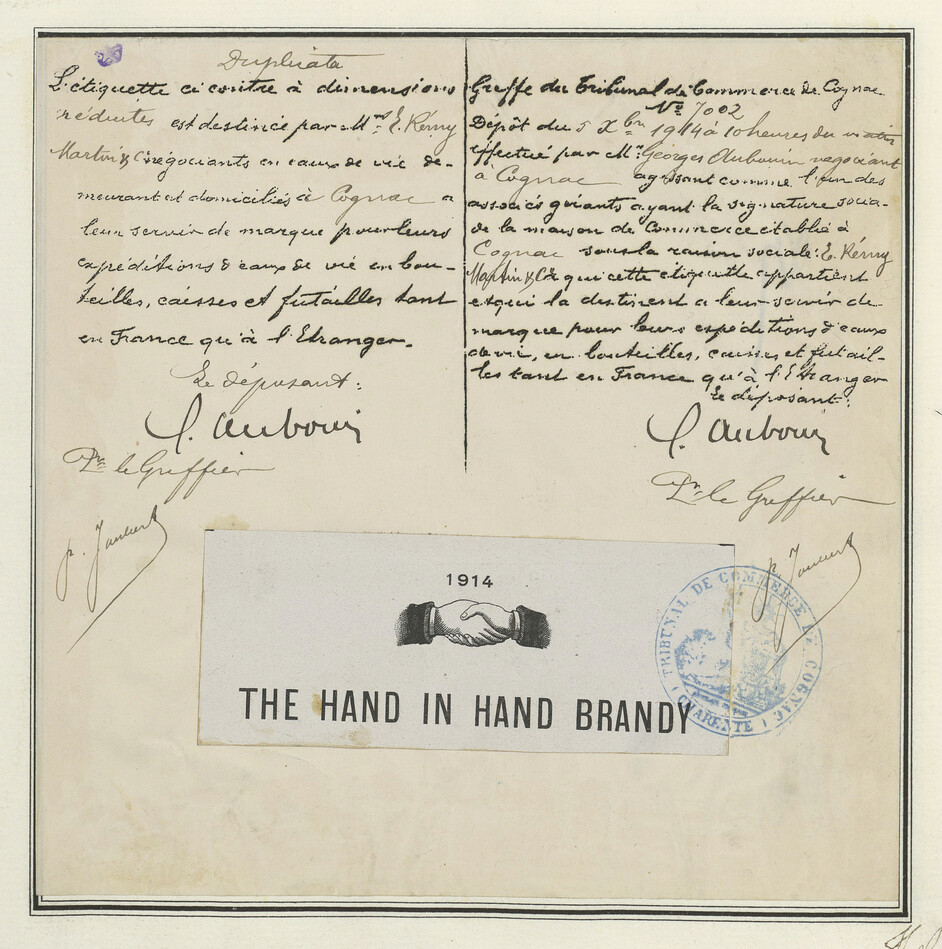 Duplicata
L'étiquette ci contre à dimensions
réduites est destinée par Mrs E. Rémy
Martin & Cie négociants en eaux de vie de-
meurant et domiciliés à Cognac a
leur servir de marque pour leurs
expéditions d'eaux de vie en bou-
teilles, caisses et futailles tant
en France qu'à l'Etranger.
Le déposant:
G. Aubouin
Pr. le Greffier
Greffe du Tribunal de Commerce de Cognac
No 7002
Dépôt du 5 Xbre 1914 à 10 heures du matin
effectué par Mr. Georges Aubouin negociant
à Cognac agissant comme l'un des
associés gérants ayant la signature socia-
de la maison de Commerce établie à
Cognac sous la raison sociale: E. Rémy
Martin & Cie qui cette etiquette appartient
et qui la destinent a leur servir de
marque pour leurs expéditions d'eaux
de vie, en bouteilles, caisses et futail-
les tant en France qu'à l'Etranger
Le déposant:
G. Aubouin
Pr. le Greffier
1914
THE HAND IN HAND BRANDY
TRIBUNAL DE COMMERCE DE COGNAC
CHARENTE